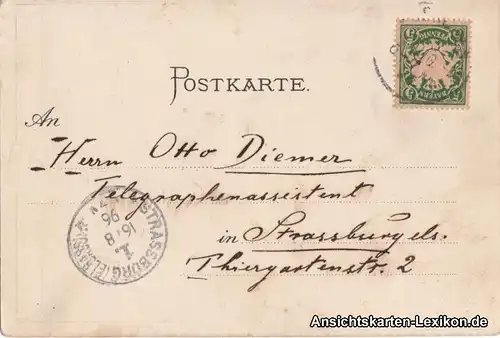 POSTKARTE.
An
Herrn Otto Diemer
Telegraphenassistent
in Strassburg els.
Thiergartenstr. 2
STRASSBURG (ELSASS)
16.8
96
BAYERN
PFENNIG
5
5
Ansichtskarten-Lexikon.de